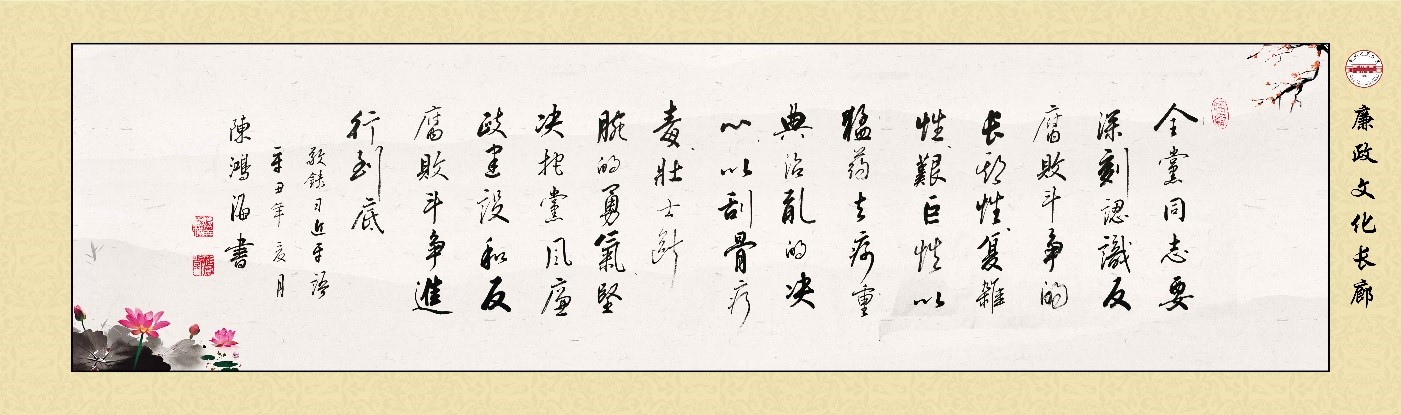 廉政文化长廊
全黨同志要
深刻認識反
腐敗斗争的
长期性复雜
性艱巨性以
猛药去疴重
典治亂的决
心以刮骨疗
毒壯士断
腕的勇氣堅
决把黨风廉
政建设和反
腐敗斗争進
行到底
敬録习近平语
辛丑年亥月
陳鴻海書